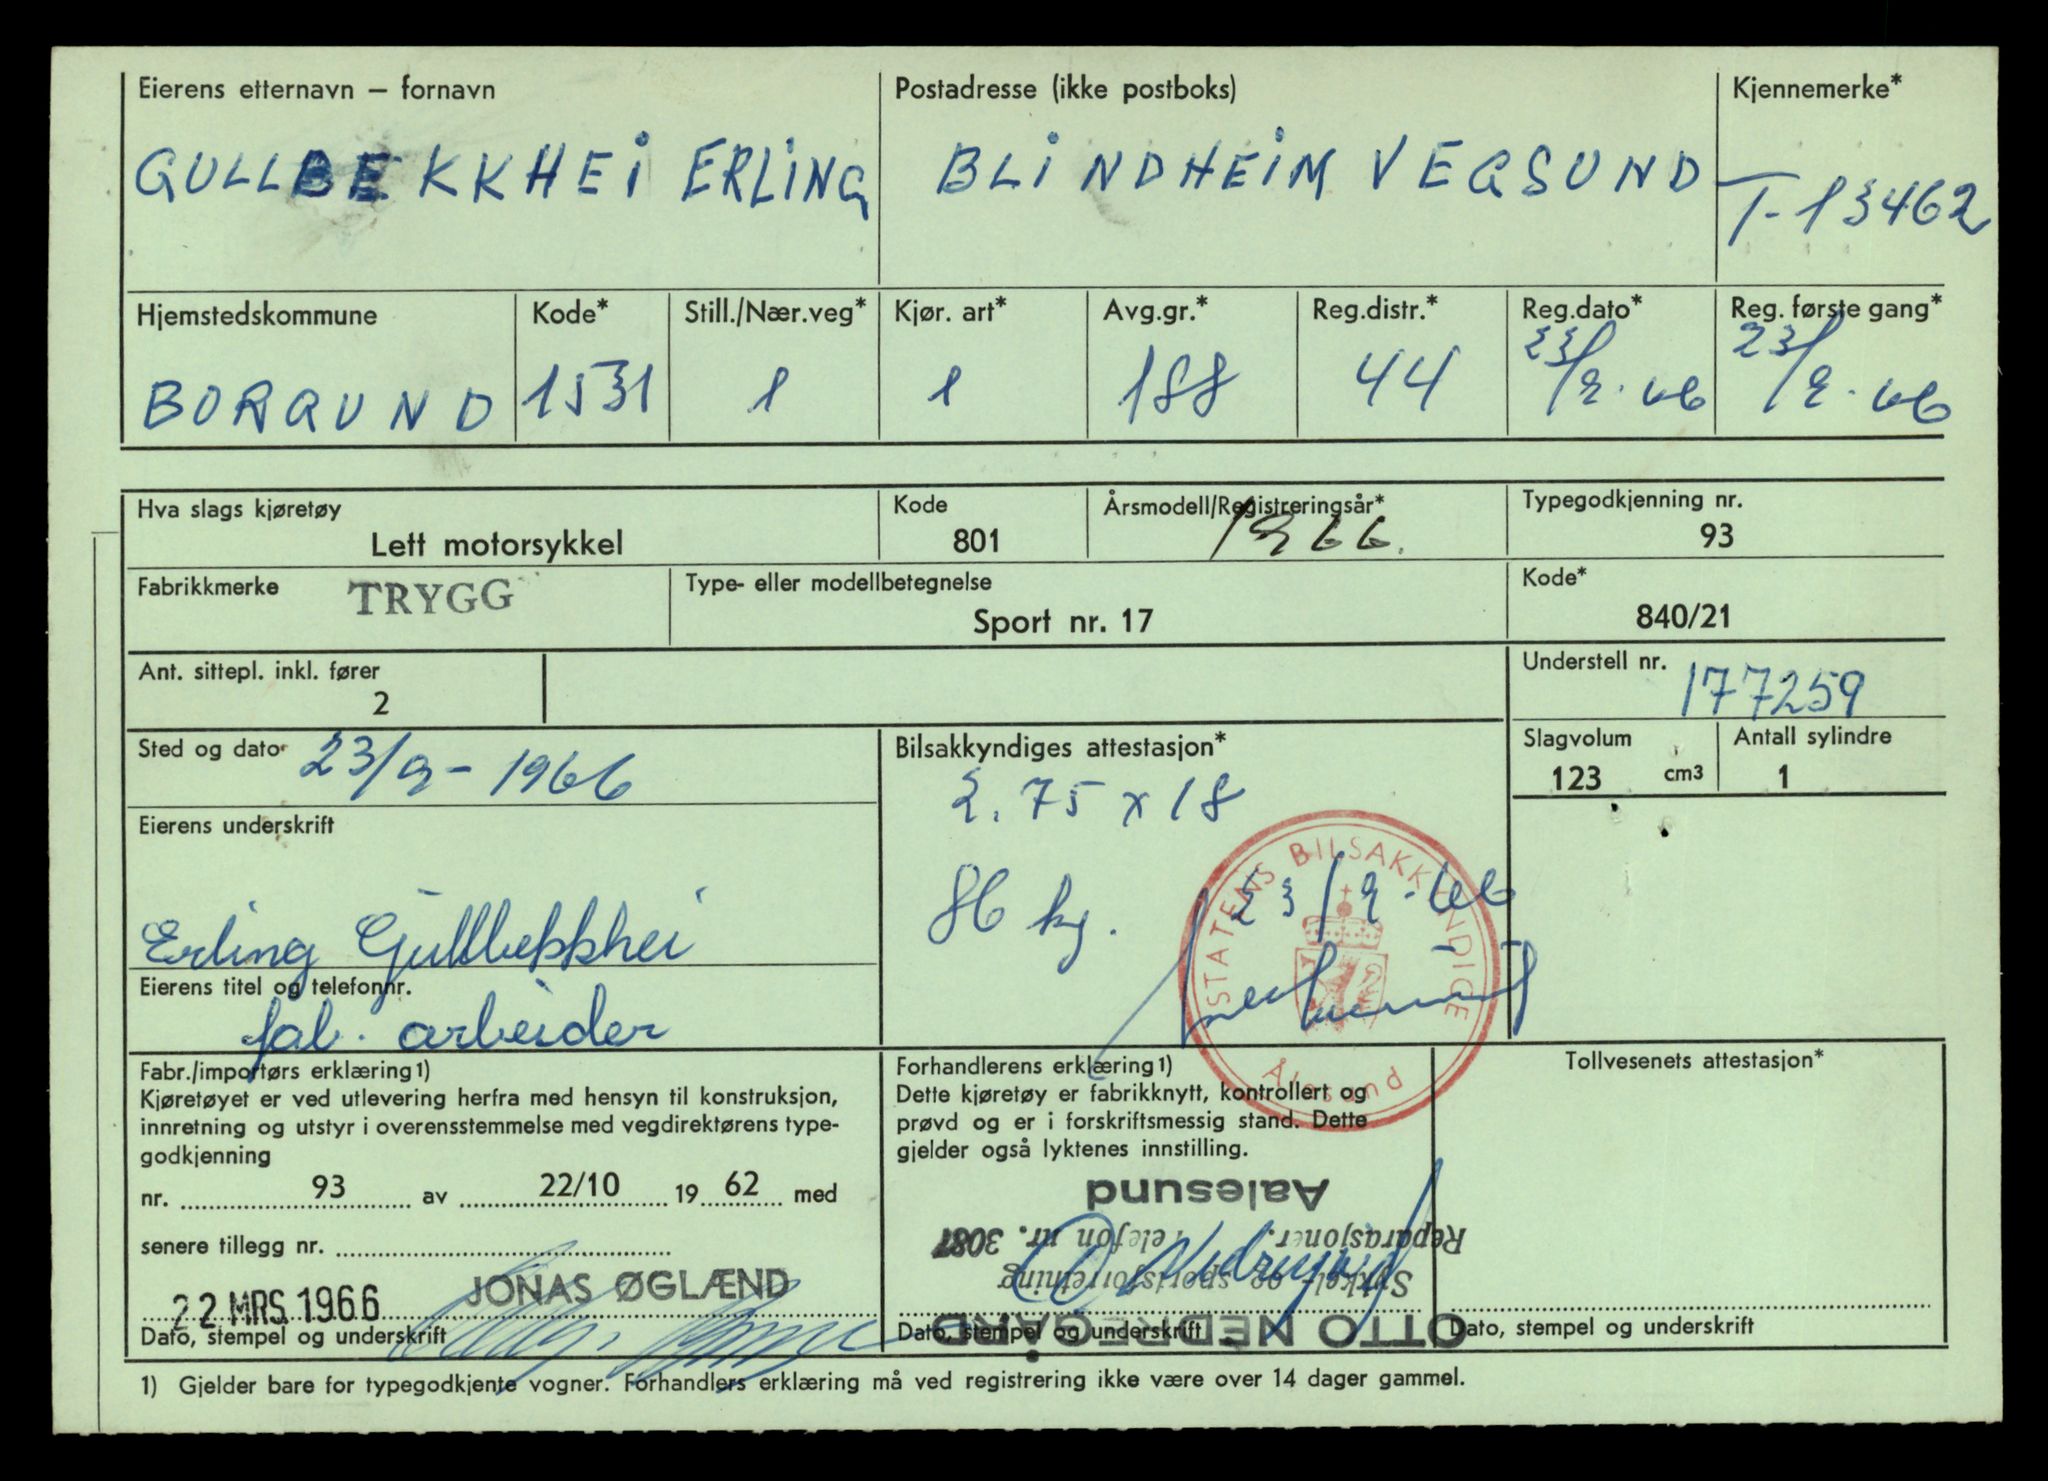 Eierens etternavn – fornavn
Postadresse (ikke postboks)
Kjennemerke*
GULLBEKKHEI ERLING
BLINDHEIM VEGSUND
T-13462
Hjemstedskommune
Kode*
Still./Nær.veg*
Kjør. art*
Avg.gr.*
Reg.distr.*
Reg.dato*
Reg. første gang*
BORGUND
1531
1
1
188
44
23/9-66
23/9-66
Hva slags kjøretøy
Kode
Årsmodell/Registreringsår*
Typegodkjenning nr.
Lett motorsykkel
801
1966.
93
Fabrikkmerke
TRYGG
Type- eller modellbetegnelse
Kode*
Sport nr. 17
840/21
Ant. sittepl. inkl. fører
2
Understell nr.
177259
Sted og dato
23/9-1966
Bilsakkyndiges attestasjon*
Slagvolum
Antall sylindre
123 cm3
1
2.75 x 18
Eierens underskrift
86 kg.
23/9-66
STATENS BILSAKKYNDIGE
Ålesund
Erling Gullbekkhei
Eierens titel og telefonnr.
fab. arbeider
Fabr./importørs erklæring1)
Kjøretøyet er ved utlevering herfra med hensyn til konstruksjon,
innretning og utstyr i overensstemmelse med vegdirektørens type-
godkjenning
nr. 93 av 22/10 1962 med
senere tillegg nr.
22 MRS. 1966
JONAS ØGLÆND
Dato, stempel og underskrift
Forhandlerens erklæring1)
Dette kjøretøy er fabrikknytt, kontrollert og
prøvd og er i forskriftsmessig stand. Dette
gjelder også lyktenes innstilling.
OTTO NEDREGÅRD
Sykkel- og sportsforretning
Reparasjoner. Telefon nr. 3081
Aalesund
O Nedregård
Dato, stempel og underskrift
Tollvesenets attestasjon*
Dato, stempel og underskrift
1) Gjelder bare for typegodkjente vogner. Forhandlers erklæring må ved registrering ikke være over 14 dager gammel.